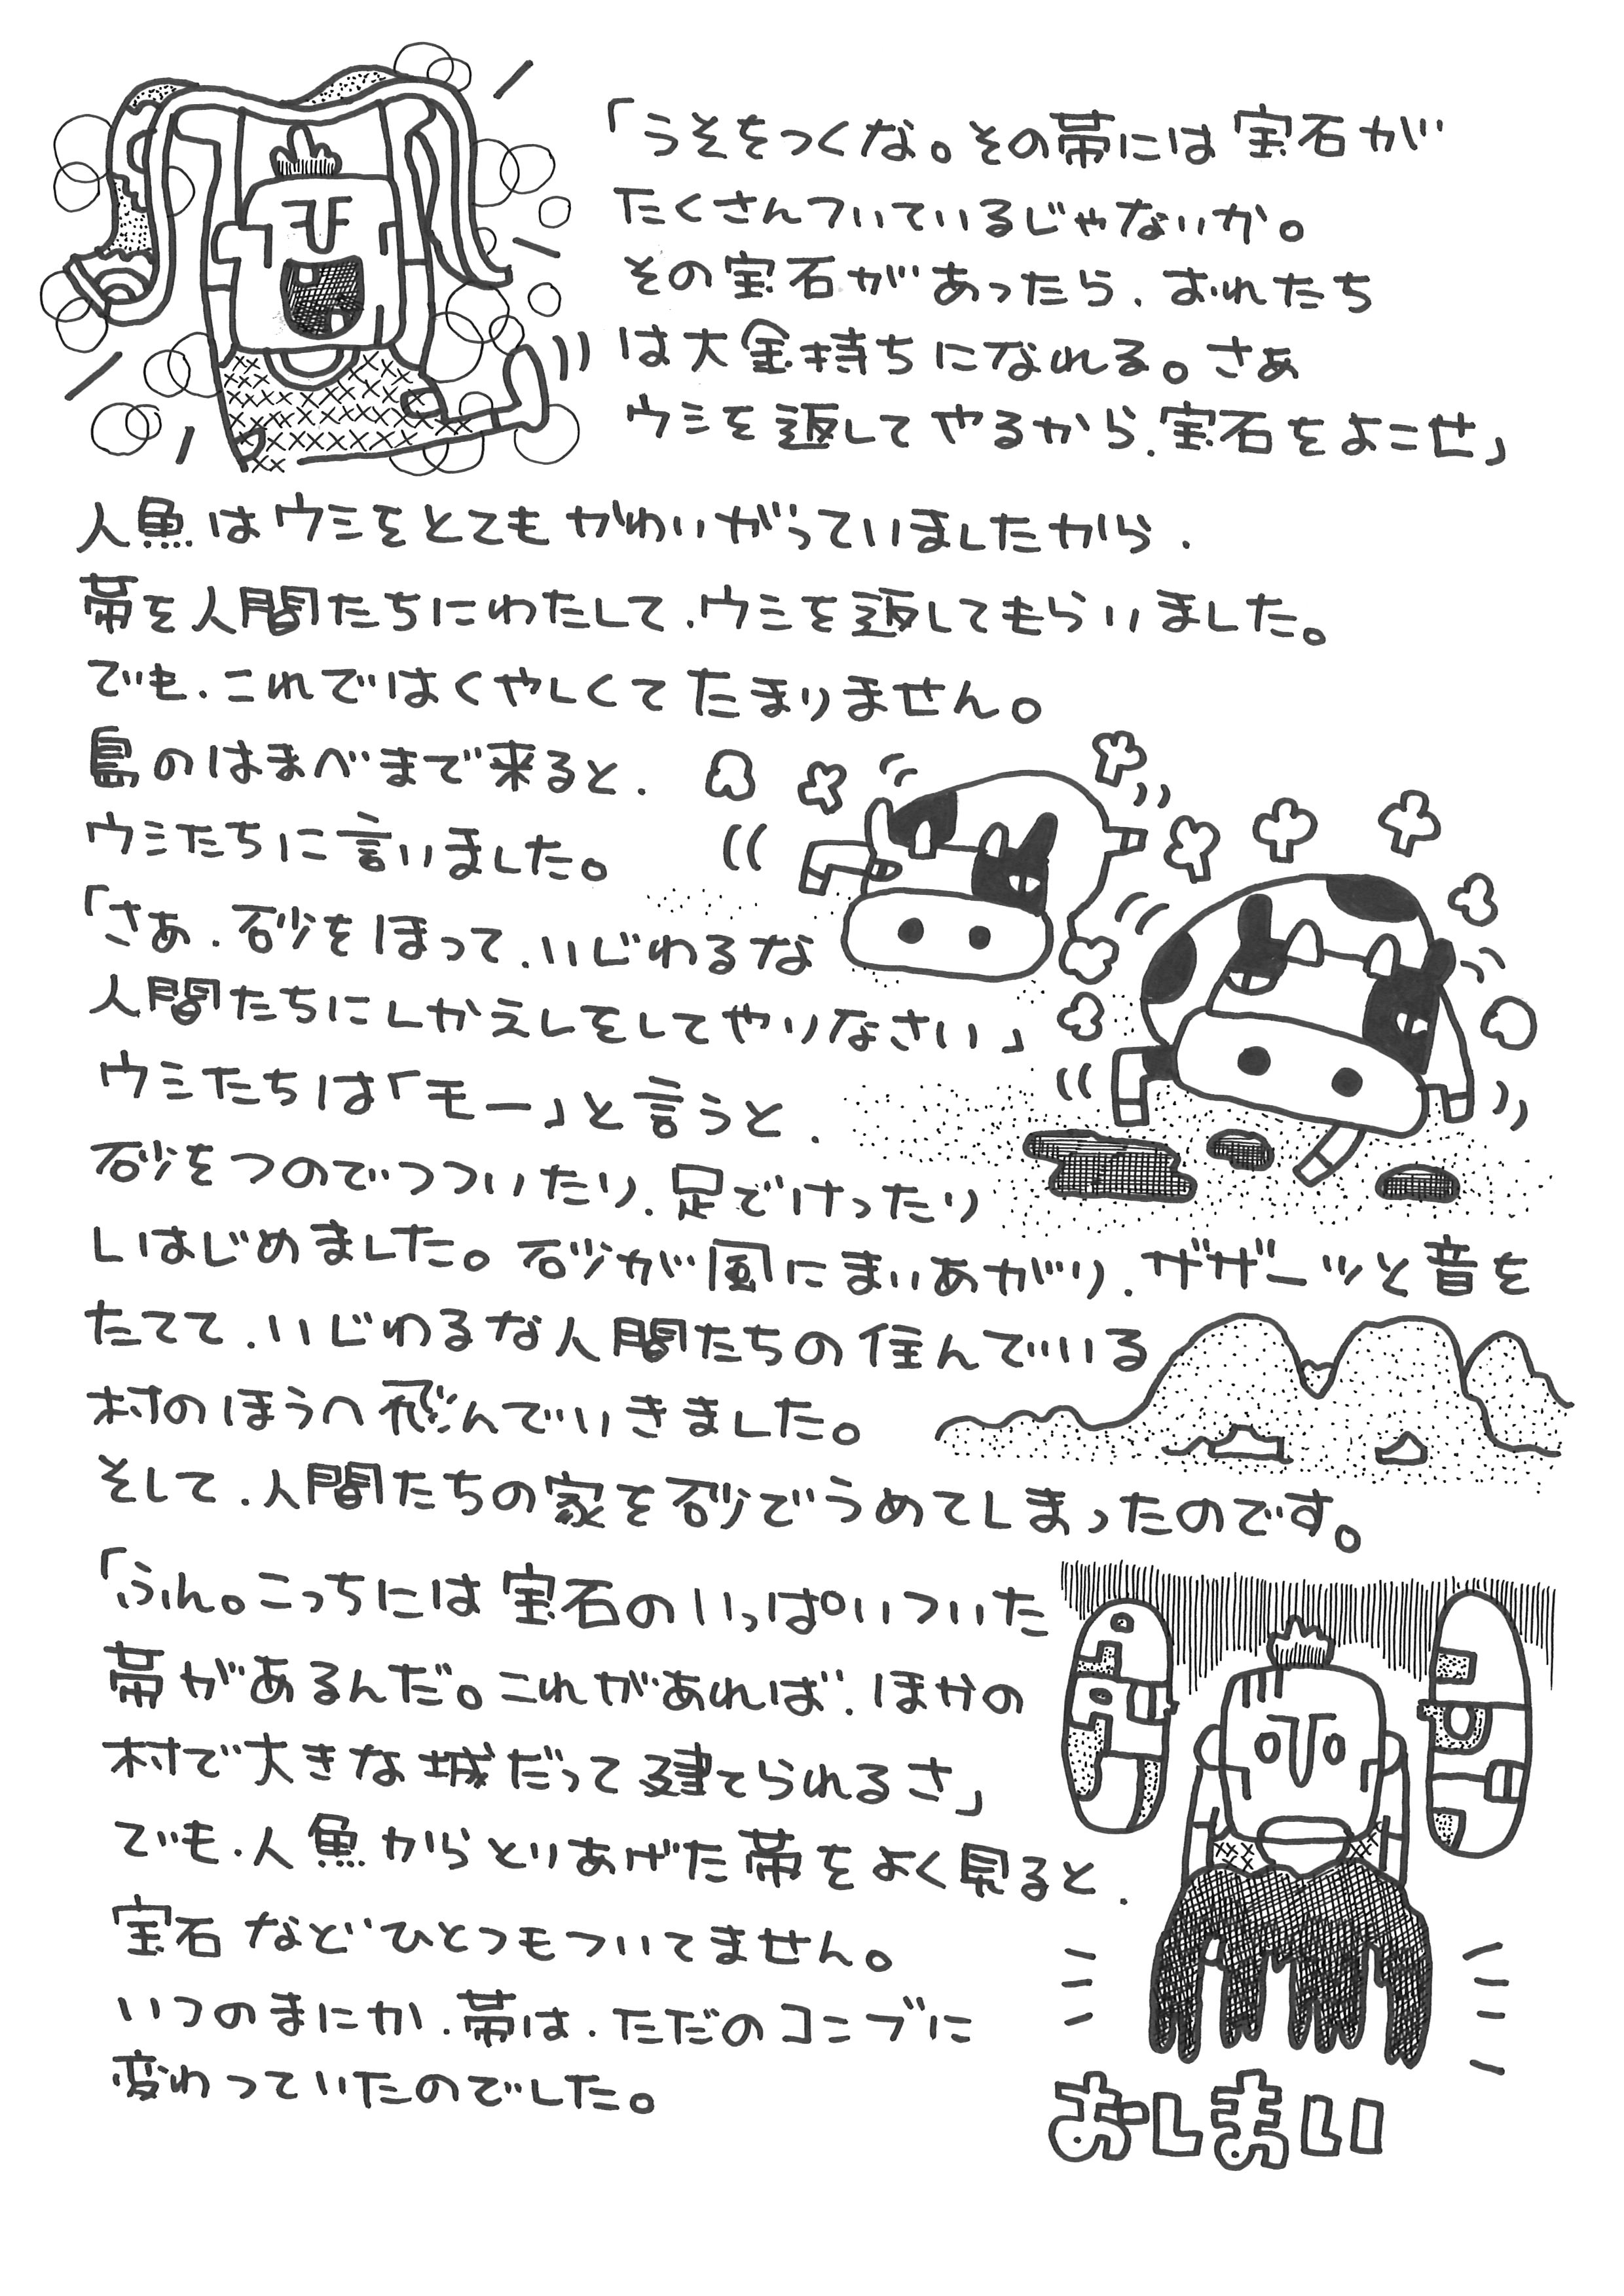 「うそをつくな。その帯には宝石が
たくさんついているじゃないか。
その宝石があったら、おれたち
は大金持ちになれる。さぁ
ウシを返してやるから、宝石をよこせ」
人魚はウシをとてもかわいがっていましたから、
帯を人間たちにわたして、ウシを返してもらいました。
でも、これではくやしくてたまりません。
島のはまべまで来ると、
ウシたちに言いました。
「さあ、砂をほって、いじわるな
人間たちにしかえしをしてやりなさい」
ウシたちは「モー」と言うと、
砂をつのでつついたり、足でけったり
しはじめました。砂が風にまいあがり、ザザーッと音を
たてて、いじわるな人間たちの住んでいる
村のほうへ飛んでいきました。
そして、人間たちの家を砂でうめてしまったのです。
「ふん。こっちには宝石のいっぱいついた
帯があるんだ。これがあれば、ほかの
村で大きな城だって建てられるさ」
でも、人魚からとりあげた帯をよく見ると、
宝石などひとつもついてません。
いつのまにか、帯は、ただのコンブに
変わっていたのでした。
おしまい